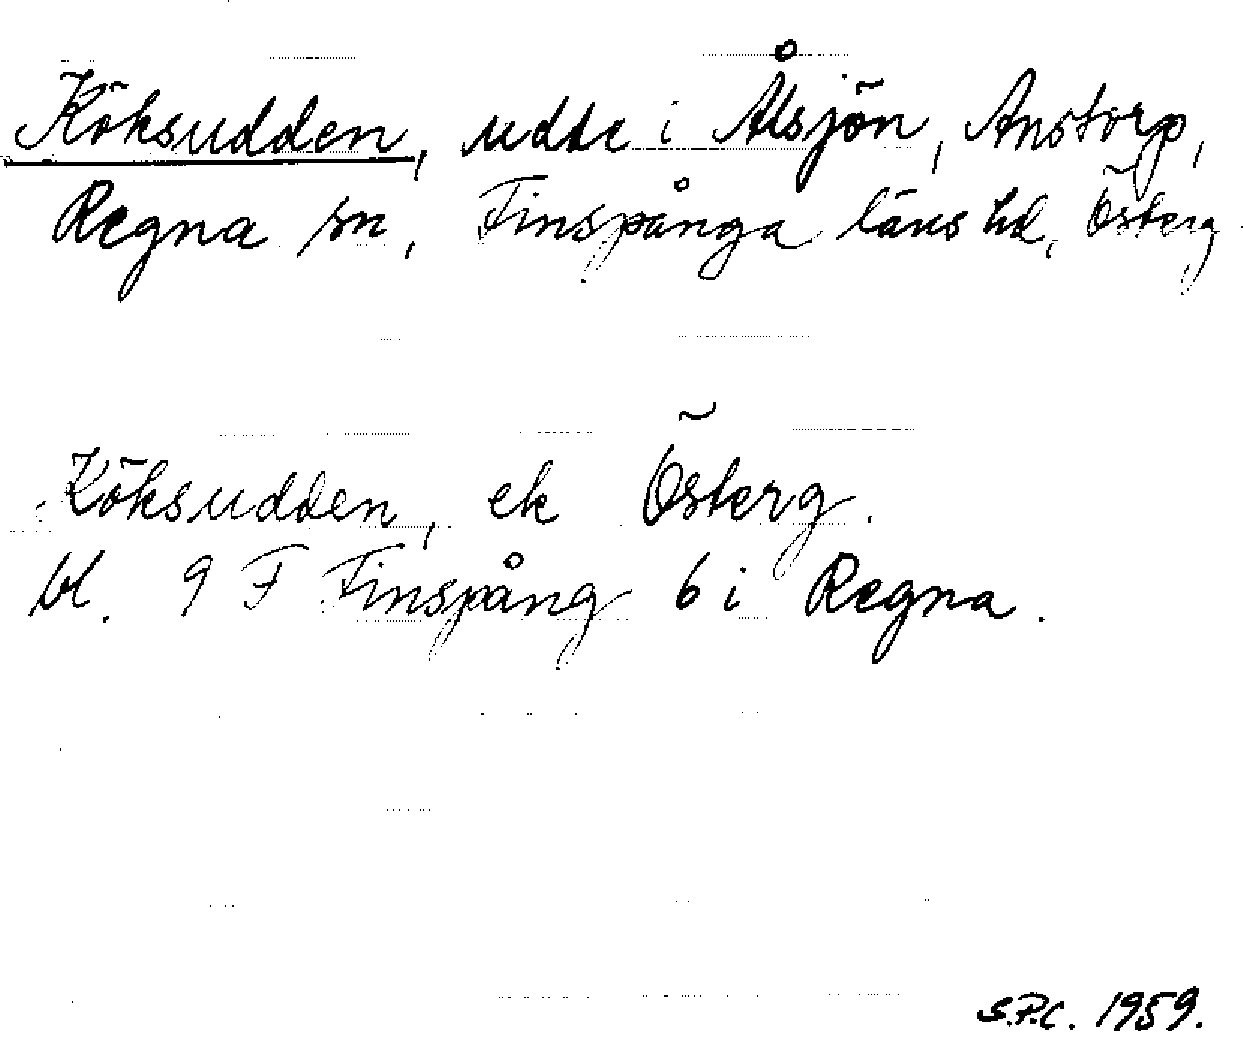 Köksudden, udde i Ålsjön, Anstorp,
Regna sn, Finspånga läns hd, Österg
Köksudden, ek Österg.
bl. 9 F Finspång 6 i Regna.
S.P.C. 1959.